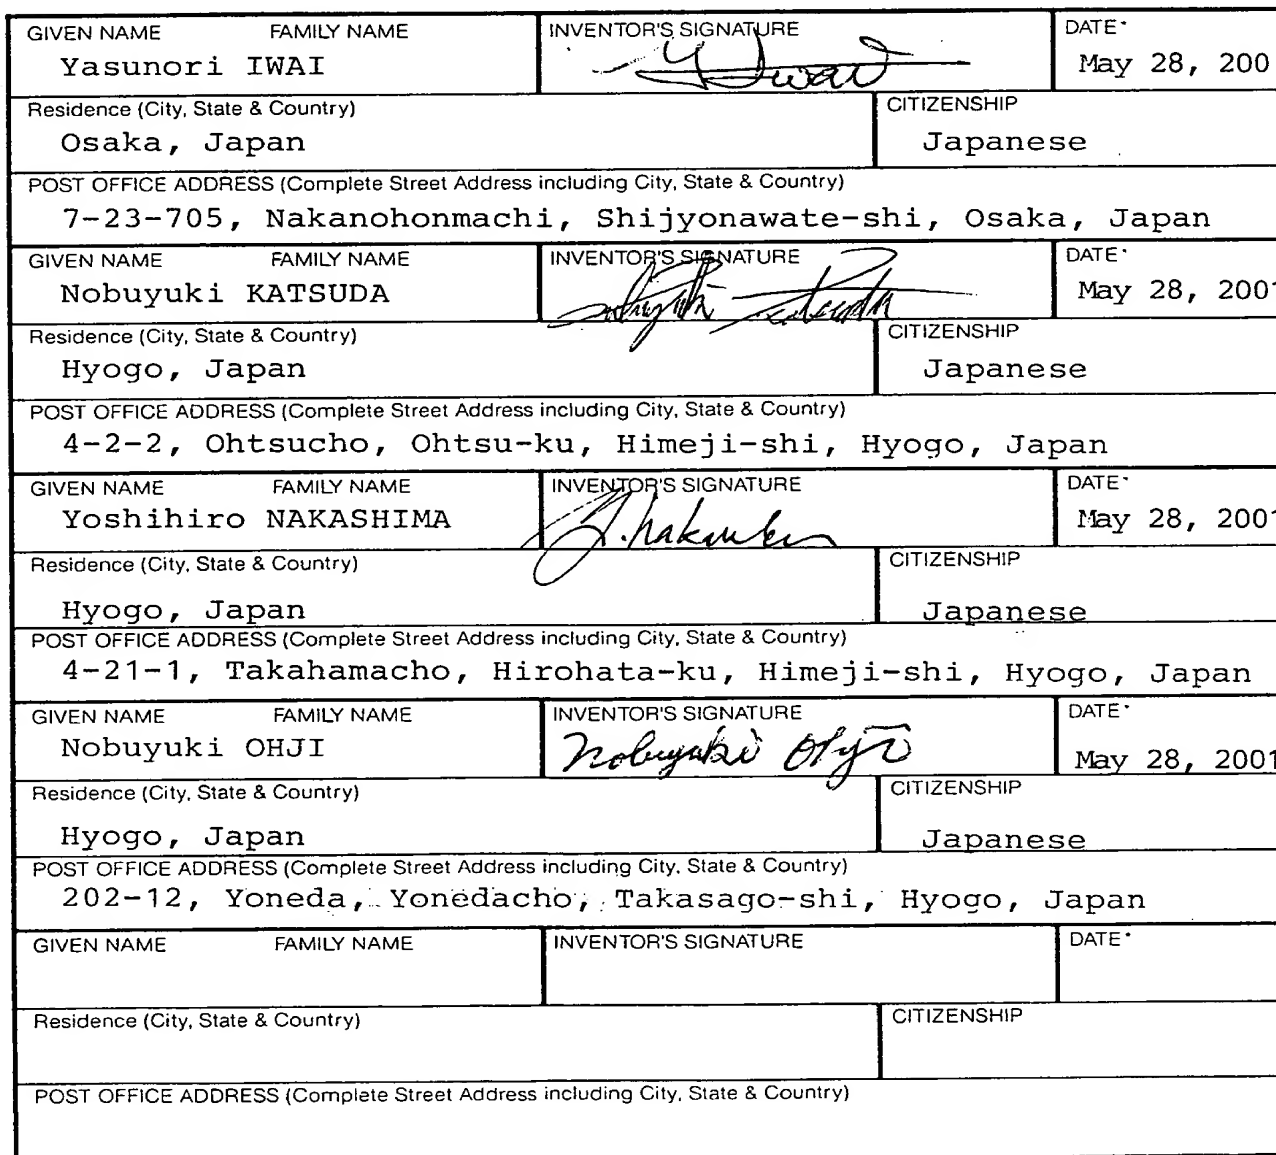 GIVEN NAME FAMILY NAME INVENTOR'S SIGNATURE DATE*
Yasunori IWAI Y. Iwai May 28, 200
Residence (City, State & Country) CITIZENSHIP
Osaka, Japan Japanese
POST OFFICE ADDRESS (Complete Street Address including City, State & Country)
7-23-705, Nakanohonmachi, Shijyonawate-shi, Osaka, Japan
GIVEN NAME FAMILY NAME INVENTOR'S SIGNATURE DATE*
Nobuyuki KATSUDA Nobuyuki Katsuda May 28, 2001
Residence (City, State & Country) CITIZENSHIP
Hyogo, Japan Japanese
POST OFFICE ADDRESS (Complete Street Address including City, State & Country)
4-2-2, Ohtsucho, Ohtsu-ku, Himeji-shi, Hyogo, Japan
GIVEN NAME FAMILY NAME INVENTOR'S SIGNATURE DATE*
Yoshihiro NAKASHIMA Y. May 28, 2001
Residence (City, State & Country) CITIZENSHIP
Hyogo, Japan Japanese
POST OFFICE ADDRESS (Complete Street Address including City, State & Country)
4-21-1, Takahamacho, Hirohata-ku, Himeji-shi, Hyogo, Japan
GIVEN NAME FAMILY NAME INVENTOR'S SIGNATURE DATE*
Nobuyuki OHJI Nobuyuki Ohji May 28, 2001
Residence (City, State & Country) CITIZENSHIP
Hyogo, Japan Japanese
POST OFFICE ADDRESS (Complete Street Address including City, State & Country)
202-12, Yoneda, Yonedacho, Takasago-shi, Hyogo, Japan
GIVEN NAME FAMILY NAME INVENTOR'S SIGNATURE DATE*
Residence (City, State & Country) CITIZENSHIP
POST OFFICE ADDRESS (Complete Street Address including City, State & Country)